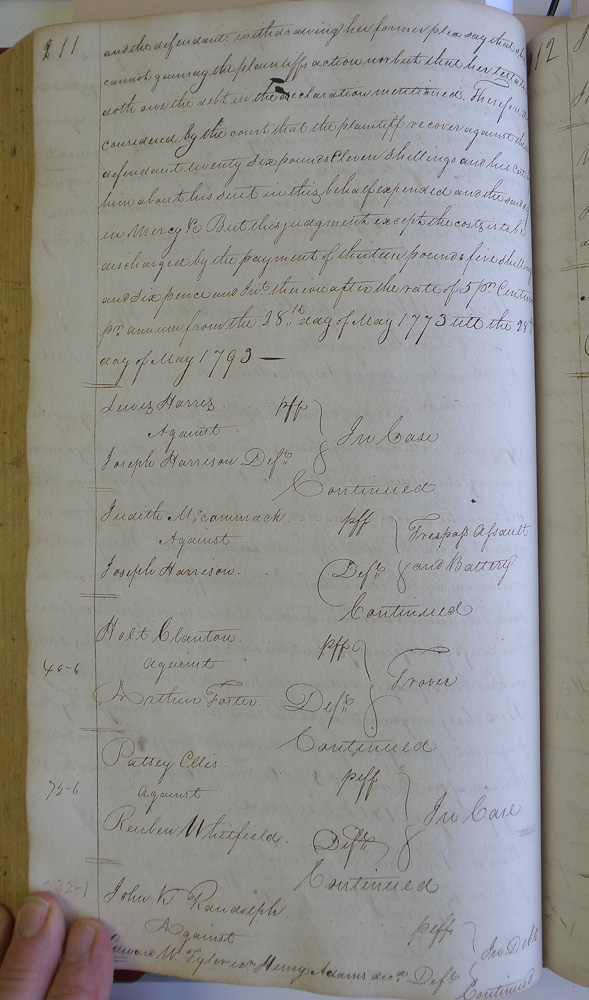 211
and the defendant withdrawing her former plea say that she
cannot gainsay the plaintiffs action nor but that her testator
doth owe the debt in the declaration mentioned. Therefore
considered by the court that the plaintiff recover against the
defendant twenty Six pounds Eleven Shillings and his costs
him about his suit in this behalf expended and the said
in Mercy &c But this judgment except the costs is to be
discharged by the payment of thirteen pounds five Shillings
and Six pence and Int. thereon after the rate of 5 pr. Centum
pr. annum from the 28th day of May 1773 till the 28th
day of May 1793 —
Lewis Harris plff
Against
Joseph Harrison Deft.
In Case
Continued
Judith Mc.commack plff
Against
Joseph Harrison. Deft.
Trespass Assault
and Battery
Continued
Holt Clanton plff
against
40-6
Arthur Foster Deft.
Trover
Continued
Patsey Ellis. plff
75-6
Against
Reuben Whitfield. Deft.
In Case
Continued
232-1
John K Randolph plff
Against
Edward W Tyler exr Henry Adams decd. Deft.
In Debt
Continued
12